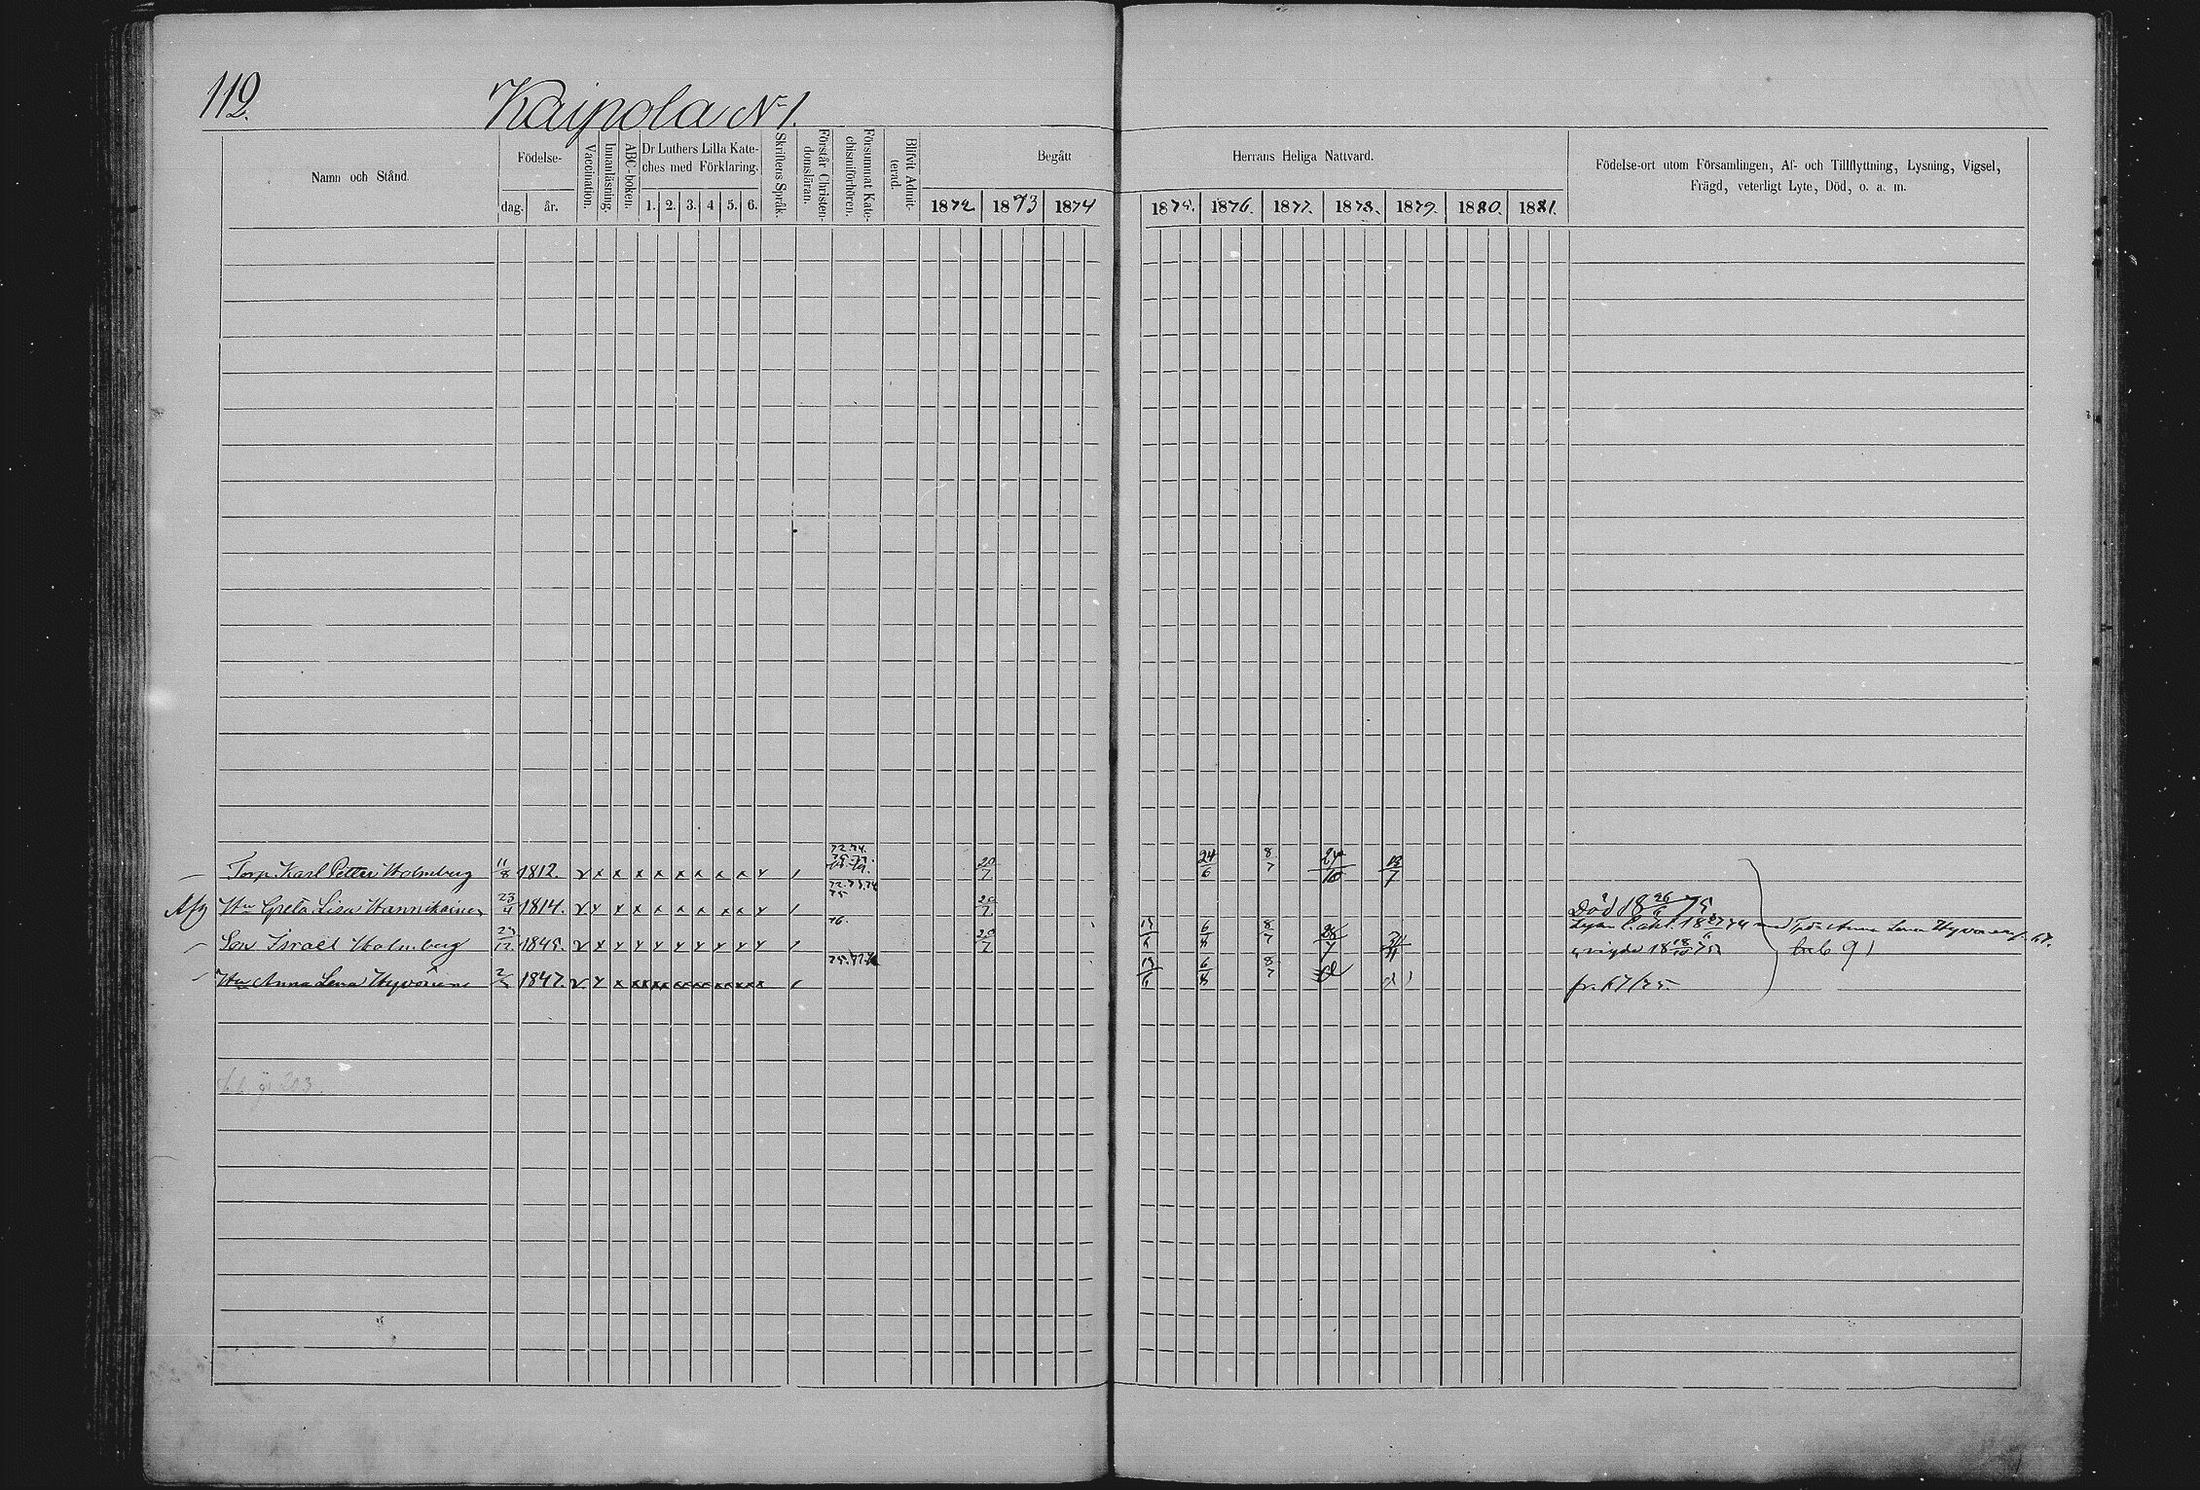 112.
Kaipola No 1.
Namn och Stånd.
Födelse-
dag. år.
Vaccination.
Innanläsning.
ABC-boken.
Dr Luthers Lilla Kate-
ches med Förklaring.
1. 2. 3. 4 5. 6.
Skriftens Språk.
Förstår Christen-
domsläran.
Försummat Kate-
chismiförhören.
Blifvit Admit-
terad.
Begått
1872 1873 1874
Herrans Heliga Nattvard.
1875. 1876. 1877. 1878. 1879. 1880. 1881.
Födelse-ort utom Församlingen, Af- och Tillflyttning, Lysning, Vigsel,
Frägd, veterligt Lyte, Död, o. a. m.
Torp. Karl Petter Holmberg 11/8 1812. v x x x x x x x x x / 72.74. 20/7 24/6 8/7 24/10 13/7
Hu Greta Lisa Hannikainen 23/4 1814. v x x x x x x x x x / 72.73.74 75 20/7 Död 18 26/6 75
Son Israel Holmberg 1845. v x x x x x x x x x / 76. 20/7 6/8 8/7 Anna Lena Hyvönen 67.
vigde 18 75
bs 91
Hu Anna Lena Hyvönen 1847. v x x / 6/8 8/7 fr. 67/75.
203.